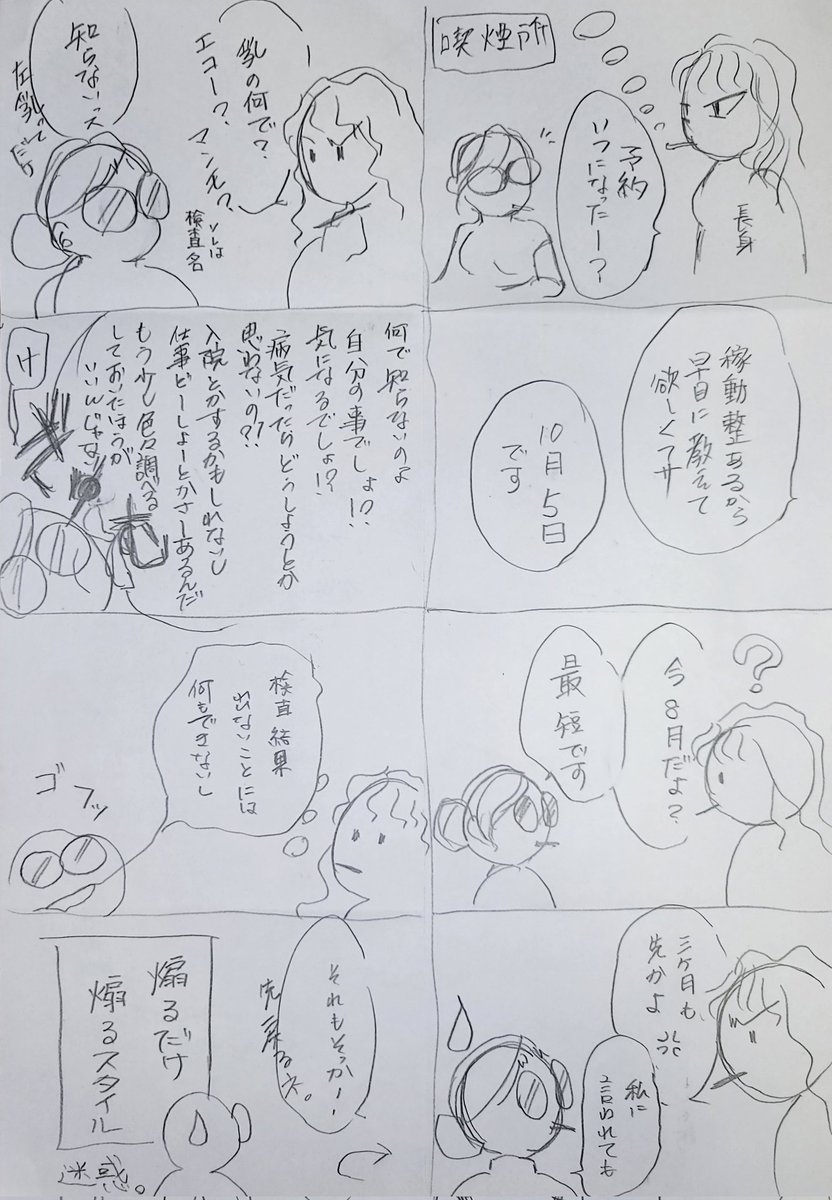 喫煙所
予約
いつになったー?
長身
稼動整あるから
早目に教えて
欲しくてサ
10月5日
です
今8月だよ?
最短です
三ケ月も
先かよ
私に
言われても
乳の何で?
エコー?
マンモ?
ソレは
検査名
知らないっス
左乳って
だけ
何で知らないのよ
自分の事でしょ!?
気になるでしょ!?
病気だったらどうしようとか
思わないの?!
入院とかするかもしれないし
仕事どーしょーとかさーあるんだ
もう少し色々調べる
しておいたほうが
いいんじゃない
け
検査結果
出ないことには
何もできないし
ゴフッ
それもそっかー!
先戻るネ。
煽るだけ
煽るスタイル
迷惑。